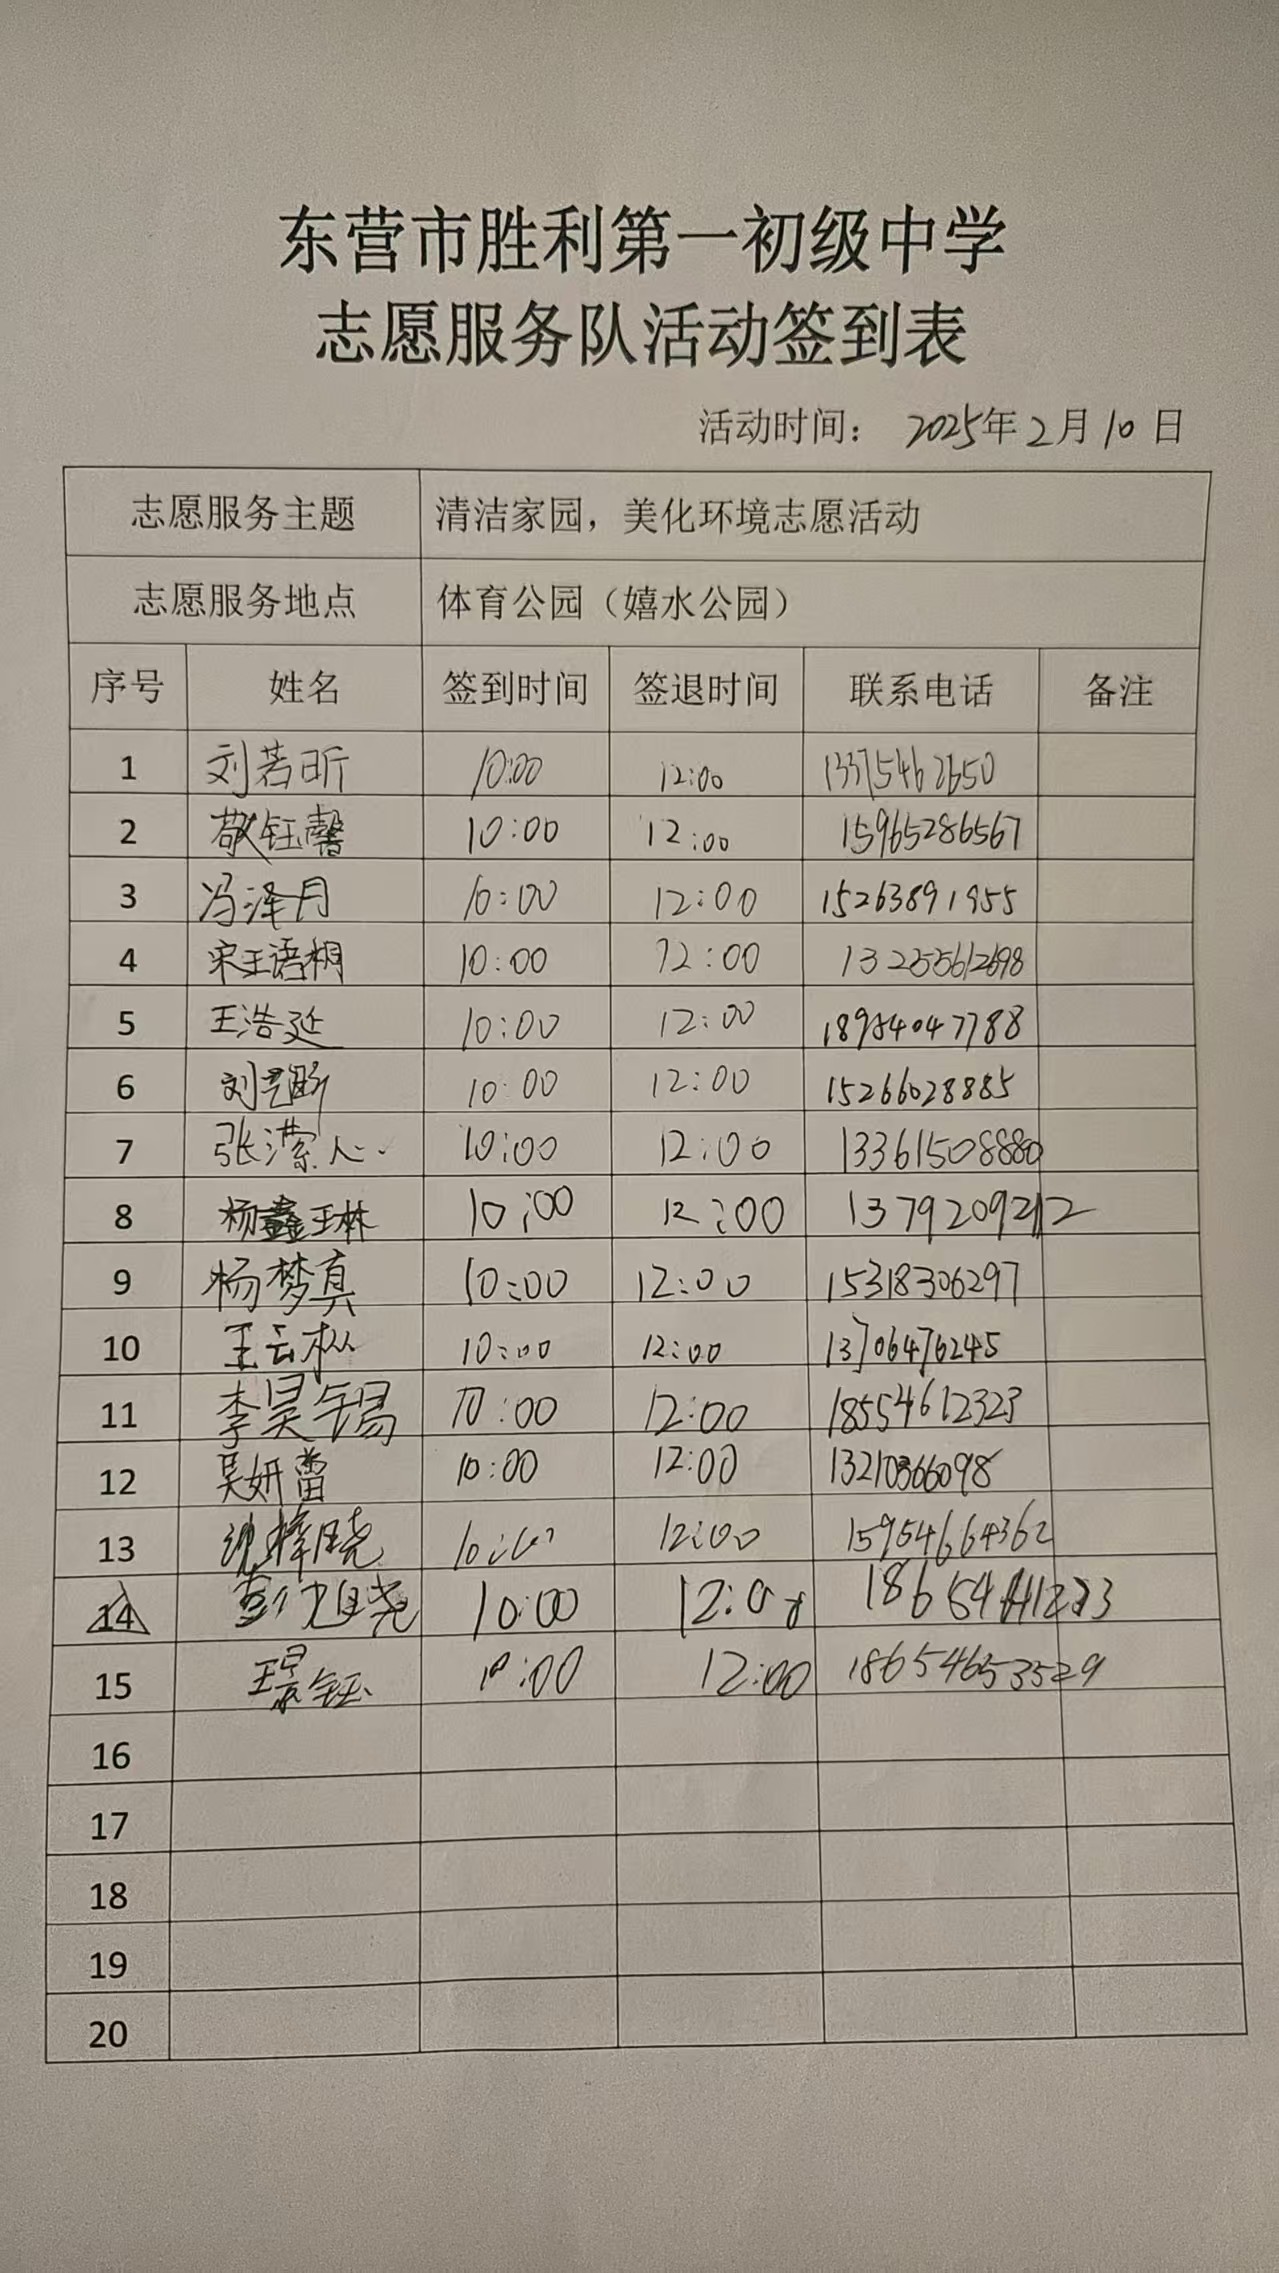 东营市胜利第一初级中学
志愿服务队活动签到表
活动时间： 2025年2月10日
志愿服务主题 清洁家园，美化环境志愿活动
志愿服务地点 体育公园（嬉水公园）
序号 姓名 签到时间 签退时间 联系电话 备注
1 刘若昕 10:00 12:00 13375462650
2 敬钰馨 10:00 12:00 15965286567
3 冯泽月 10:00 12:00 15263891955
4 宋王语桐 10:00 12:00 13255612698
5 王浩延 10:00 12:00 18954047788
6 刘艺昕 10:00 12:00 15266028885
7 张潆心 10:00 12:00 13361508880
8 杨鑫琳 10:00 12:00 13792092112
9 杨梦真 10:00 12:00 15318306297
10 王云枞 10:00 12:00 13706476245
11 李昊锡 10:00 12:00 18554612323
12 吴妍蕾 10:00 12:00 13210366098
13 沈梓晓 10:00 12:00 15954664362
14 10:00 12:00
15 王景钰 10:00 12:00 18654653529
16
17
18
19
20